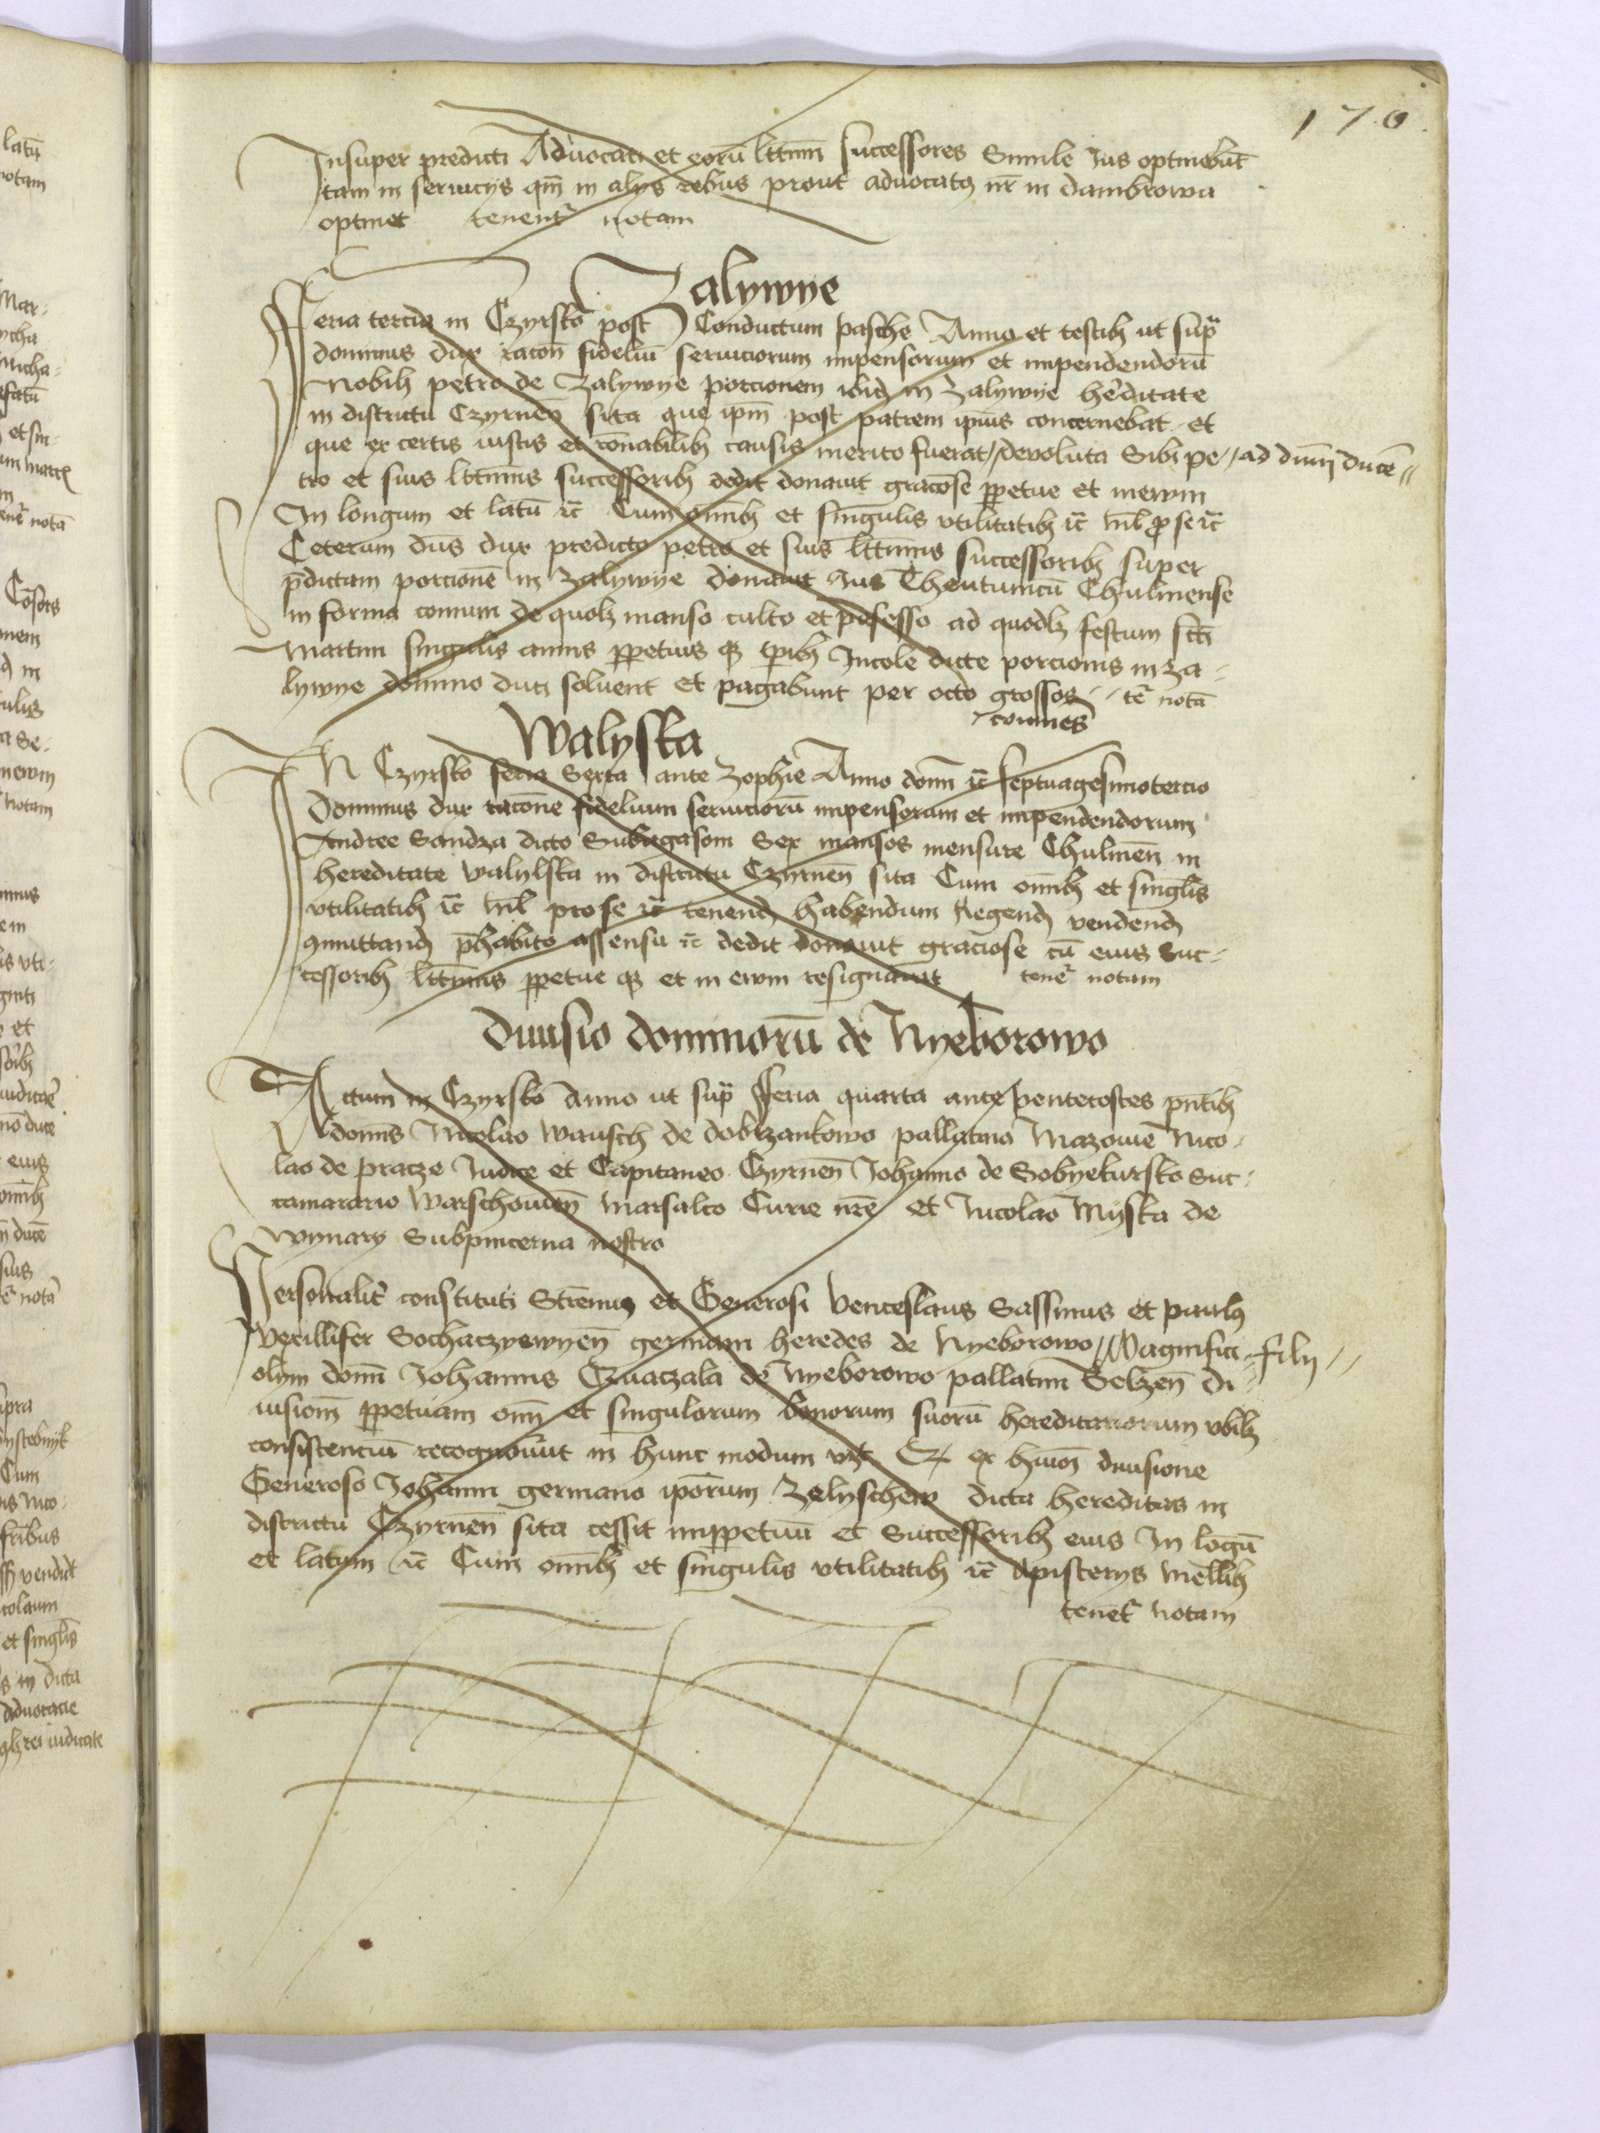 170
Insuper predicti Advocati et eorū lttimi successores Simile Jus optinebūt
tam in seruicijs qm̄ in alys rebus prout advocatꝰ nr̄ in dambrowa
optinet tenentr̄ notam
Zalywye
Feria tercia in Czyrsko post Conductum pasche Anno et testibꝫ ut supra
dominus dux racōn fideliū seruiciorum impensorum et impendendorū
Nobili petro de Zalywye porcionem ibidꝫ in Zalywye hēditate
in districtu Czyrnēn sita que ipm̄ post patrem ipius concernebat et
que ex certis iustis et rōnabilibꝫ causis merito fuerat / devoluta Sibi pe- / ad dnm̄ ducē //
tro et suis lttimis successoribꝫ dedit donavit graciose ꝑpetue et in evum
In longum et latū ꝛc̄ Cum omībꝫ et singulis vtilitatibꝫ ꝛc̄ nil ꝓ se ꝛc̄
Ceterum dūs dux predicto petro et suis lttimis successoribꝫ super
p̄dictam porcionē in Zalywye donavit Jus Theutunicū Chulmense
in forma comuni de quolꝫ manso culto et possesso ad quodlꝫ festum scti
Martini singulis annis ꝑpetuis qꝫ tp̄ibꝫ Incole dicte porcionis in Za-
lywye domino duci soluent et pagabunt per octo grossos / tēr notā
/ coīnunes
Walyska
IN Czyrsko feria Sexta ante Zophie Anno domī ꝛc̄ septuagesimotercio
Dominus dux racōne fidelium seruiciorū impensorum et impendendorum
Andree Sandza dicto Subagasoni Sex mansos mensure Chulmēn in
hereditate walylska in districtu Czyrnēn sita Cum omībꝫ et singlis
vtilitatibꝫ ꝛc̄ nil pro se ꝛc̄ tenendꝫ habendum Regendꝫ vendendꝫ
ꝯmuttandꝫ p̄habito assensu ꝛc̄ dedit donavit graciose cū eius Suc-
cessoribꝫ lttimis ꝑpetue qꝫ et in evum resignavit tenēr notam
Divisio dominorū de Nyeborowo
Actum in Czyrsko Anno ut sup̄ Feria quarta ante pentecostes pn̄tibꝫ
domīs Nicolao Wansch de dobrzankowo pallatino Mazouie Nico-
lao de pracze Judice et Capitaneo Czyrnēn Johanno de Sobyekursko Suc-
camarario Warschouien̄ Marsalco Curie nr̄e et Nicolao Myska de
wynary Subpincerna nostro
Personalit̄ constituti Strenuꝰ et Generosi Venceslaus Sassinus et paulꝰ
Vexillifer Sochaczyewyēn germani heredes de Nyeborowo / Magnifici / filij //
olym domī Johannis Czwaczala de Nyeborowo pallatini Belzen̄ di-
uisionē ꝑpetuam omī et singulorum bonorum suorū hereditariorum vbilꝫ
consistenciū recognouēūt in hunc modum vꝫ Qꝫ ex hmōi diuisione
Generoso Johanni germano ip̄orum Zelyschew dicta hereditas in
districtu Czyrnēn sita cessit imꝑpetuū et Successoribꝫ eius In lōgū
et latum ꝛc̄ Cum omībꝫ et singulis vtilitatibꝫ ꝛc̄ Apisterys mellibꝫ
tenēt̄r notam